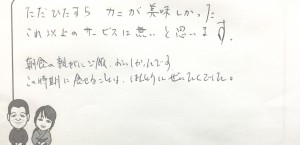 ただひたすら カニが美味しかった
これ以上のサービスは無いと思います。
朝食の 干物にご飯、おいしかったです
この時期に 来せることは、ほんとうにぜいたくでした。